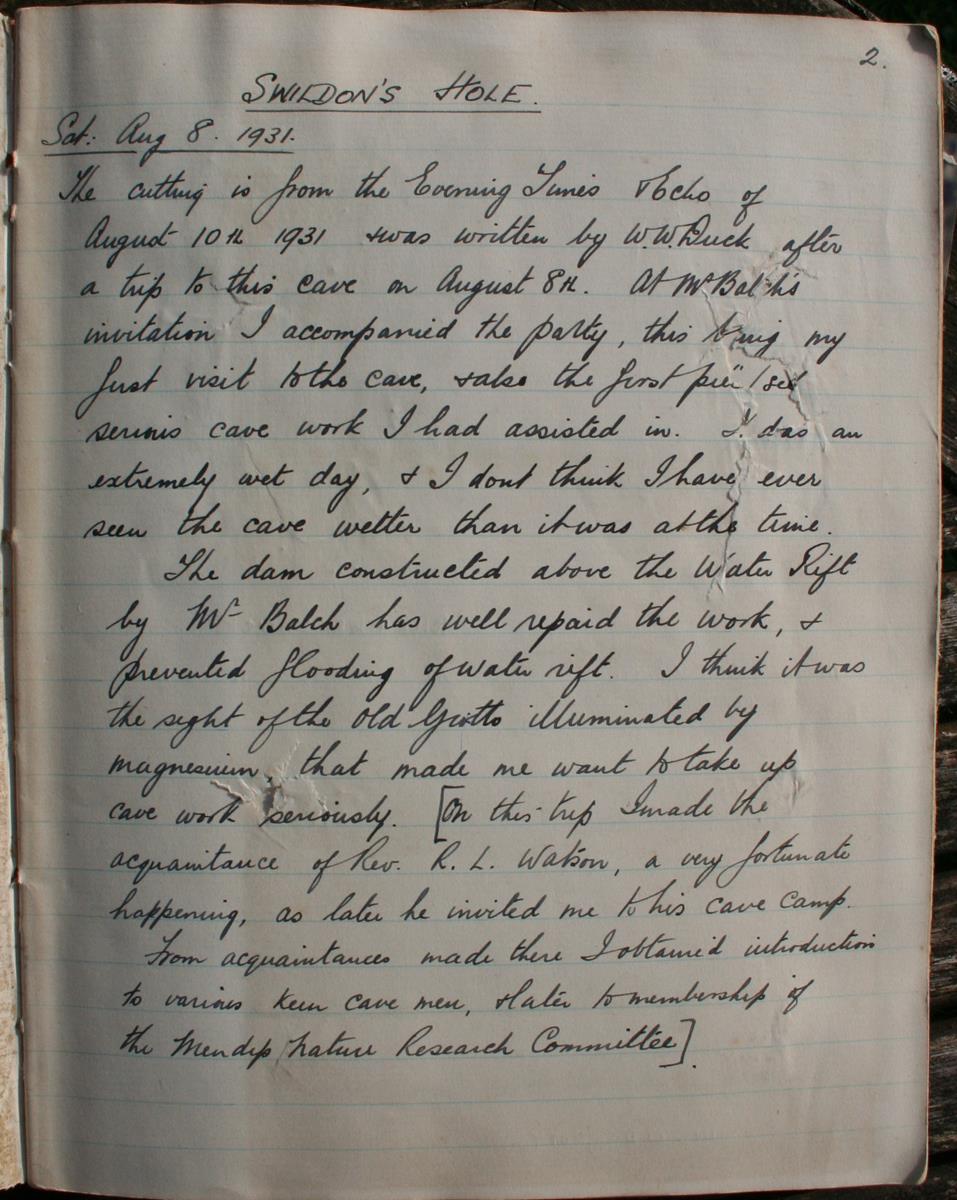 2.
SWILDON'S HOLE.
Sat: Aug 8. 1931.
The cutting is from the Evening Times & Echo of
August 10th 1931 & was written by W.W. Duck after
a trip to this cave on August 8th. At Mr Balch's
invitation I accompanied the party, this being my
first visit to the cave, & also the first
serious cave work I had assisted in. I. das an
extremely wet day, & I dont think I have ever
seen the cave wetter than it was at the time.
The dam constructed above the Water Rift
by Mr Balch has well repaid the work, &
prevented flooding of water rift. I think it was
the sight of the Old Grotto illuminated by
magnesium, that made me want to take up
cave work seriously. [On this trip I made the
acquaintance of Rev. R. L. Watson, a very fortunate
happening, as later he invited me to his cave camp.
From acquaintances made there I obtained introduction
to various keen cave men, & later to membership of
the Mendip Nature Research Committee]